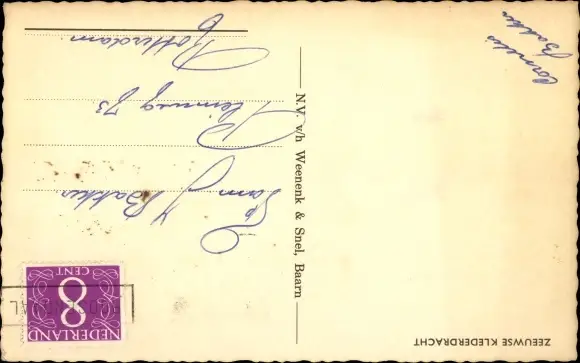 ZEEUWSE KLEDERDRACHT
Cornelis
Bakker
N.V. v/h Weenenk & Snel, Baarn
NEDERLAND
8
CENT
Fam J Bakker
Pleinweg 73
Rotterdam.